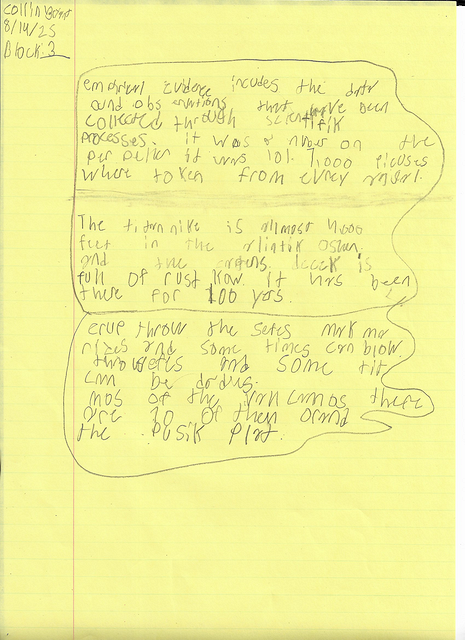 Collin
8/14/25
Block: 3
emarical Evidence incudes the data
and obs ervations that have been
collected through scientifik
processes. it was a nomber on the
per peller it was 101. 1,000 picuses
where token from evrey
The titannike is almost 4,000
feet in the atlintik oshen.
and the decck is
full of rust Kow. it has been
there for 100 yrs.
erup throw the
rizes and some times can blow.
and some
can be
mos of the there
are 10 of them orannd
the pusik plat.